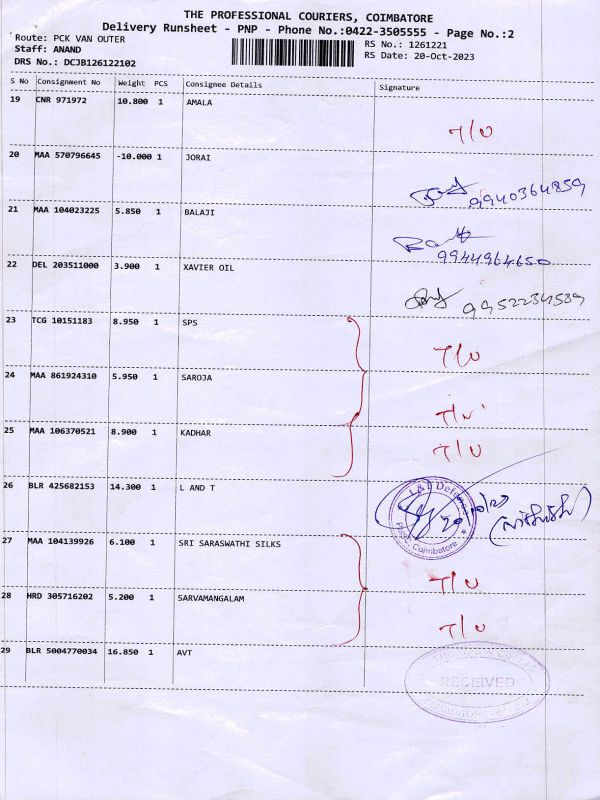 THE PROFESSIONAL COURIERS, COIMBATORE
Delivery Runsheet - PNP - Phone No.:0422-3505555 - Page No.:2
Route: PCK VAN OUTER
RS No.: 1261221
Staff: ANAND
RS Date: 20-Oct-2023
DRS No.: DCJB126122102
S No Consignment No Weight PCS Consignee Details Signature
19 CNR 971972 10.800 1 AMALA
T/U
20 MAA 570796645 -10.000 1 JORAI
9940364859
21 MAA 104023225 5.850 1 BALAJI
9944964650
22 DEL 203511000 3.900 1 XAVIER OIL
9952234589
23 TCG 10151183 8.950 1 SPS
T/U
24 MAA 861924310 5.950 1 SAROJA
T/U
25 MAA 106370521 8.900 1 KADHAR
T/U
26 BLR 425682153 14.300 1 L AND T
L&T
Coimbatore
20/10/23
27 MAA 104139926 6.100 1 SRI SARASWATHI SILKS
T/U
28 HRD 305716202 5.200 1 SARVAMANGALAM
T/U
29 BLR 5004770034 16.850 1 AVT
RECEIVED